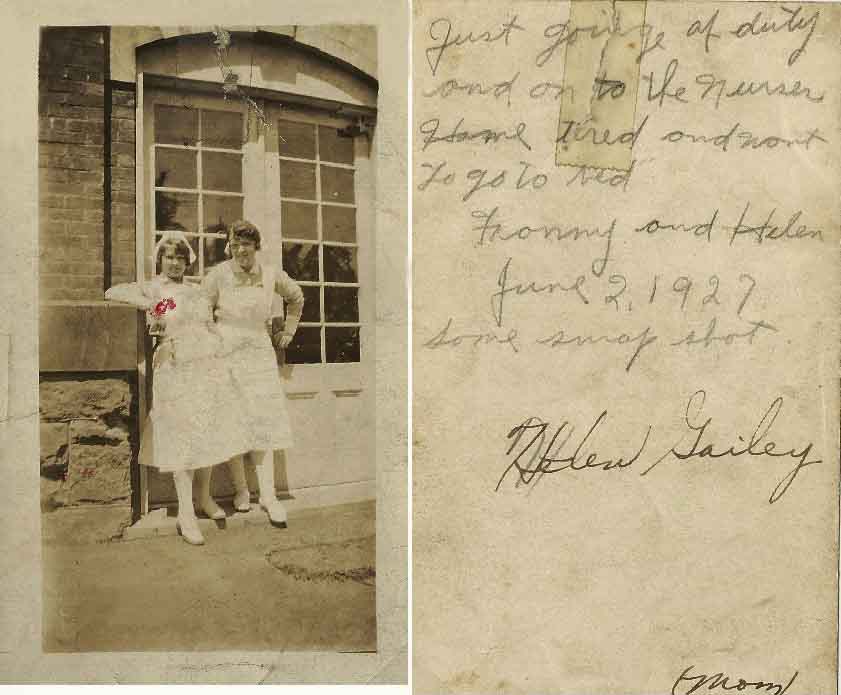 Just goinge of duty
and on to the Nurses
Home tired and wont
to go to bed
Franny and Helen
June 2, 1927
some snap shot.
Helen Gailey
(Mom)